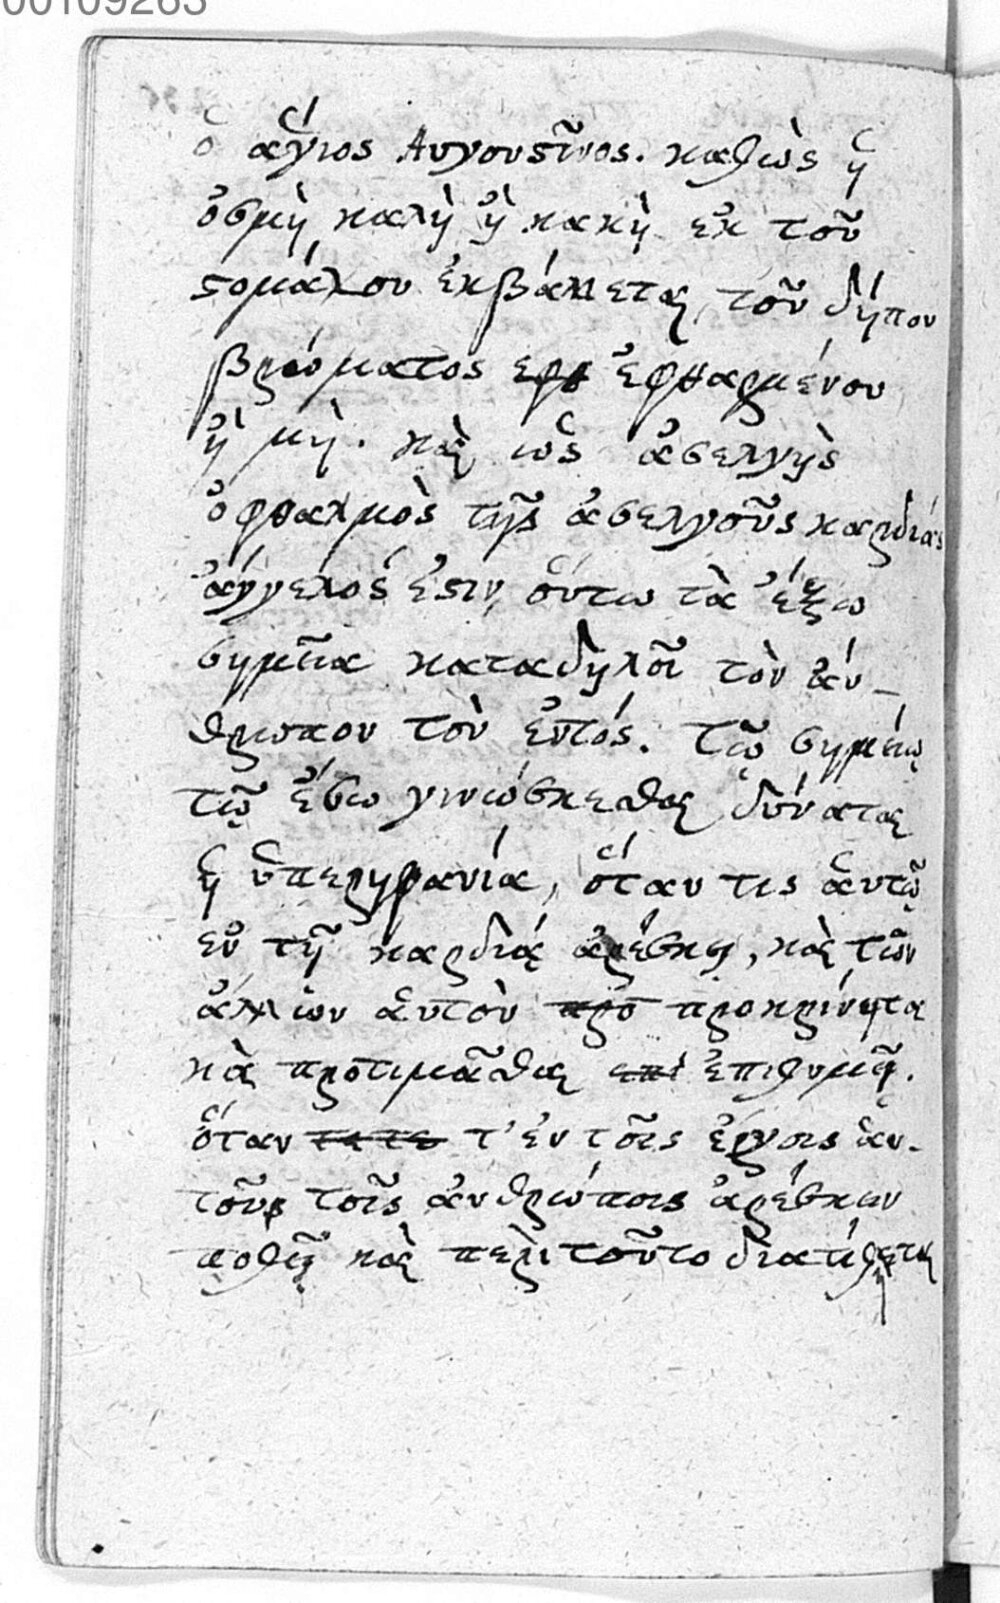 00109263
ὁ ἅγιος Αυγουστῖνος. καθὼς ἡ
ὀσμὴ καλὴ ἢ κακὴ ἐκ τοῦ
στομάχου ἐκβάλλεται, τοῦ δήπου
βρώματος εφθ ἐφθαρμένου
ἢ μὴ. καὶ ὡς ἀσελγὴς
ὀφθαλμὸς τῆς ἀσελγοῦς καρδιάς
ἄγγελός ἐστιν, οὕτω τὰ ἔξω
σημεῖα καταδηλοῖ τὸν ἄν-
θρωπον τὸν ἐντός. τῷ σημείῳ
τῷ ἔσω γινώσκεσθαι δύναται
ἡ ὑπερηφανία, ὅταν τις ἑαυτῷ
ἐν τῇ καρδιᾷ ἀρέσκῃ, καὶ τῶν
ἄλλων ἑαυτὸν προ προκρίνηται
καὶ προτιμᾶσθαι επι ἐπιθυμῇ.
ὅταν τ' ἐν τοῖς ἔργοις ἑαυ-
τοῦ τοῖς ἀνθρώποις ἀρέσκειν
ποθῇ καὶ περὶ τοῦτο διατίθηται